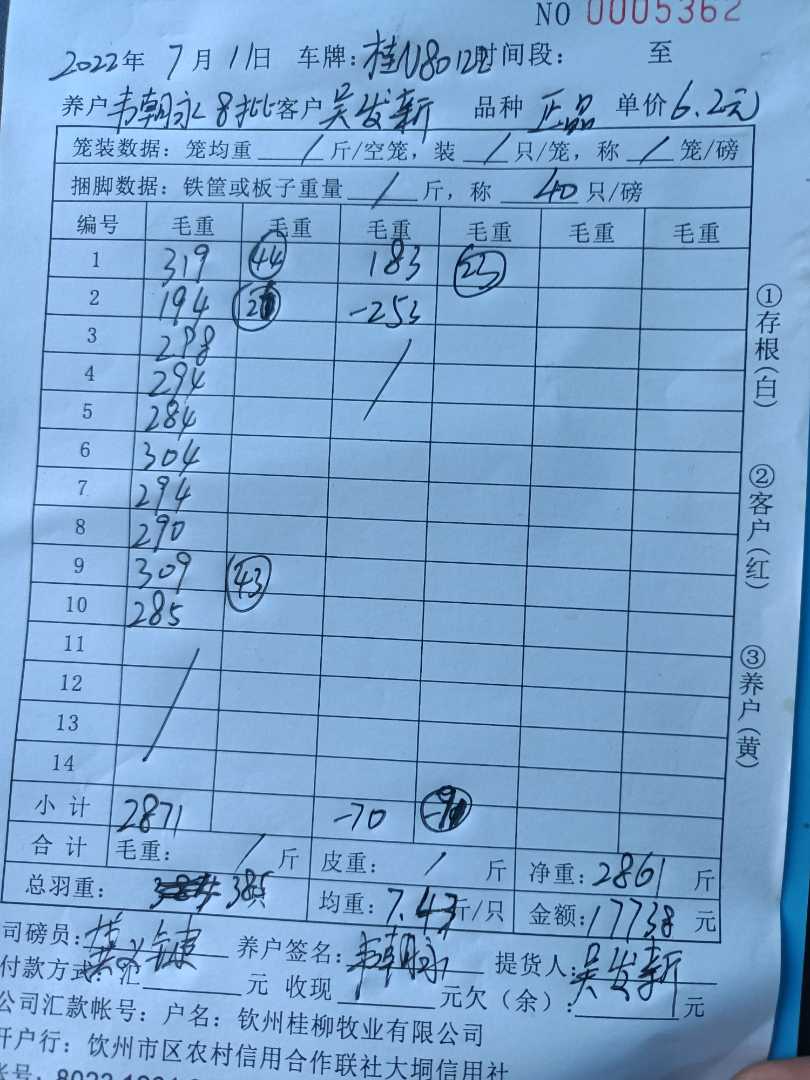 NO 0005362
2022年 7月 11日 车牌:桂N8012 时间段: 至
养户韦朝永8批客户吴发新 品种 正品 单价6.2元
笼装数据: 笼均重 / 斤/空笼, 装 / 只/笼, 称 / 笼/磅
捆脚数据: 铁筐或板子重量 / 斤, 称 40 只/磅
编号 毛重 毛重 毛重 毛重 毛重 毛重
1 319 44 183 23
2 194 -253
3 298 /
4 294
5 284
6 304
7 294
8 290
9 309 43
10 285
11 /
12
13
14
小计 2871 -70
合计 毛重: / 斤 皮重: / 斤 净重:2861 斤
总羽重: 385 均重:7.43斤/只 金额:17738 元
司磅员: 养户签名:韦朝永 提货人:吴发新
付款方式:汇 元 收现 元欠(余): 元
公司汇款帐号: 户名: 钦州桂柳牧业有限公司
开户行: 钦州市区农村信用合作联社大垌信用社
帐号: 8023
①存根(白)
②客户(红)
③养户(黄)